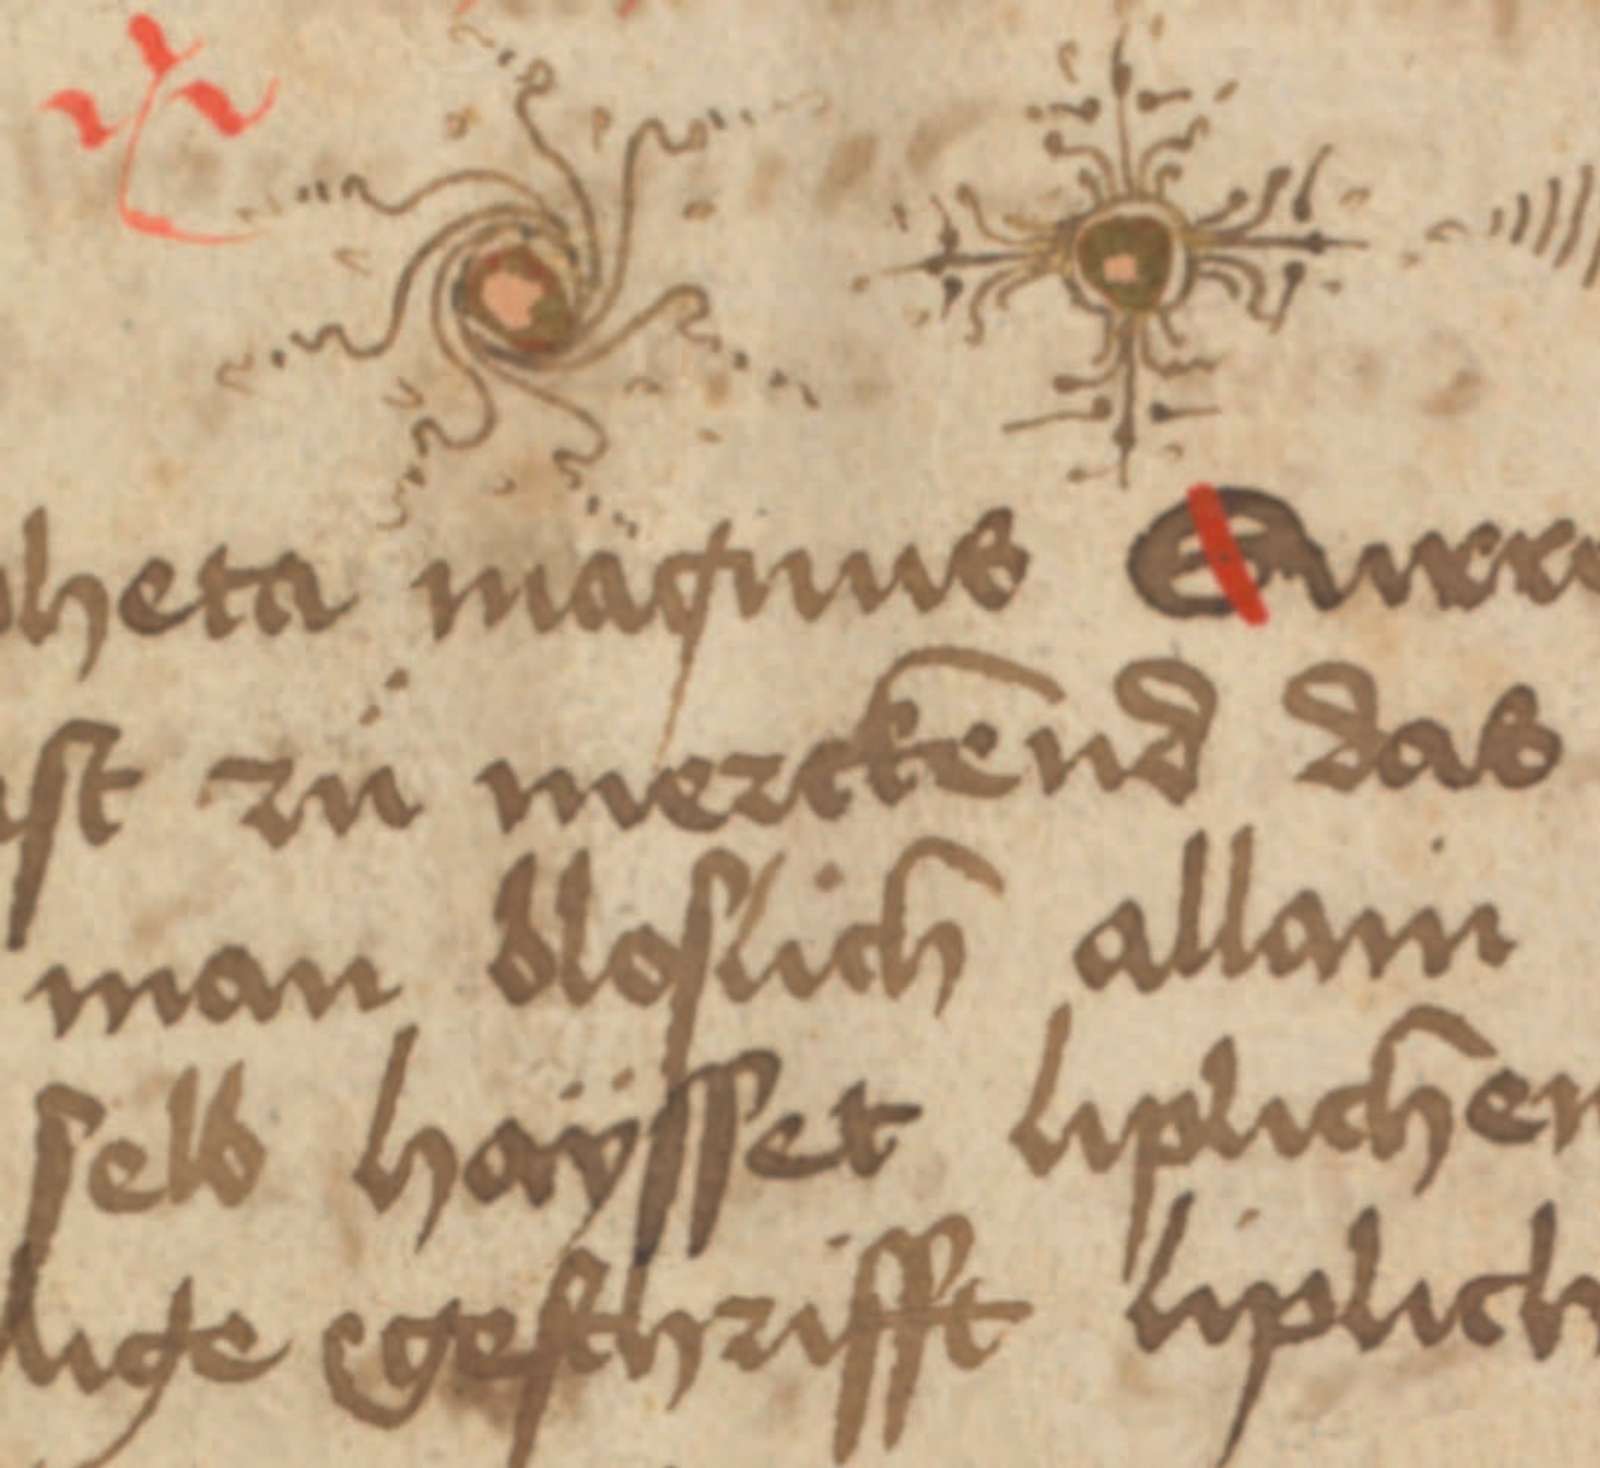 heta magnus Surre
ist zu͗ merckend das
man bloslich allain
selb haÿsset liplichen
lige geschrifft liplich